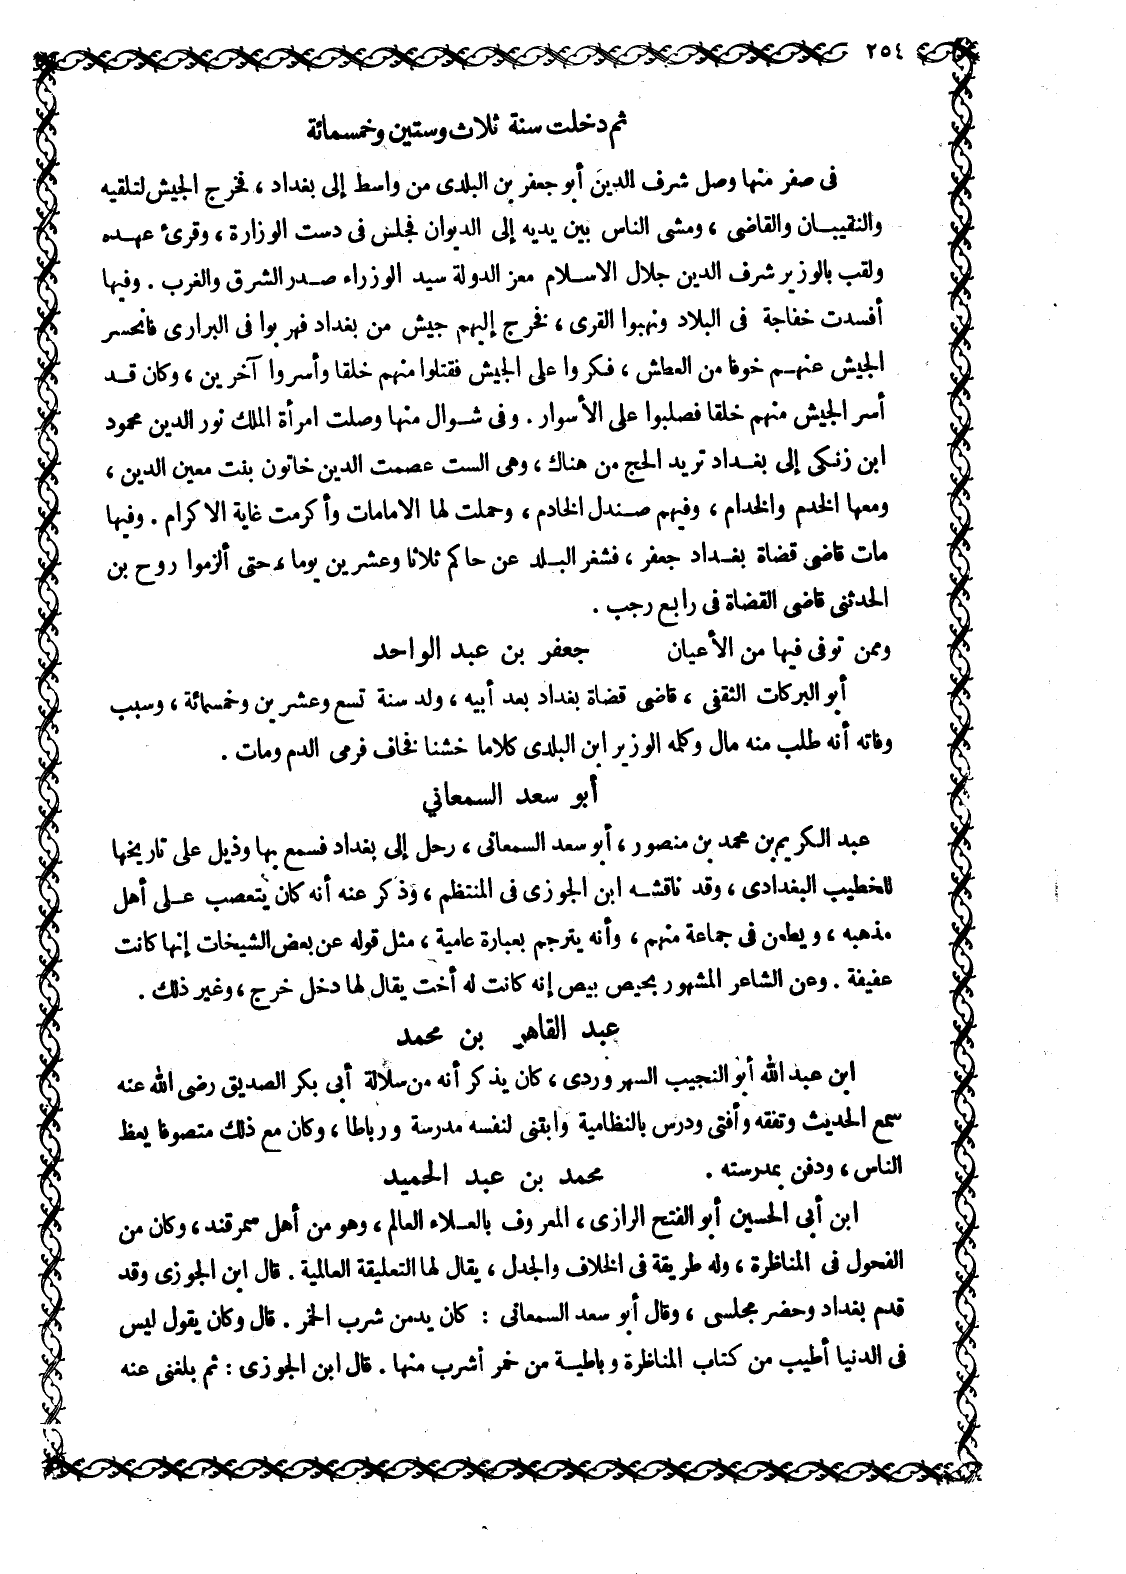 ٢٥٤
ثم دخلت سنة ثلاث وستين وخمسمائة
فى صفر منها وصل شرف الدين أبو جعفر بن البلدى من واسط إلى بغداد ، فخرج الجيش لتلقيه
والنقيبان والقاضى ، ومشى الناس بين يديه إلى الديوان فجلس فى دست الوزارة ، وقرئ عهده
ولقب بالوزير شرف الدين جلال الاسلام معز الدولة سيد الوزراء صدر الشرق والغرب . وفيها
أفسدت خفاجة فى البلاد ونهبوا القرى ، فخرج إليهم جيش من بغداد فهربوا فى البرارى فانحسر
الجيش عنهم خوفا من العطش ، فكروا على الجيش فقتلوا منهم خلقا وأسروا آخرين ، وكان قد
أسر الجيش منهم خلقا فصلبوا على الأسوار . وفى شوال منها وصلت امرأة الملك نور الدين محمود
ابن زنكى إلى بغداد تريد الحج من هناك ، وهى الست عصمت الدين خاتون بنت معين الدين ،
ومعها الخدم والخدام ، وفيهم صندل الخادم ، وحملت لها الامامات وأكرمت غاية الاكرام . وفيها
مات قاضى قضاة بغداد جعفر ، فشغر البلد عن حاكم ثلاثا وعشرين يوما ، حتى ألزموا روح بن
الحدثنى قاضى القضاة فى رابع رجب .
وممن توفى فيها من الأعيان جعفر بن عبد الواحد
أبو البركات الثقفى ، قاضى قضاة بغداد بعد أبيه ، ولد سنة تسع وعشرين وخمسمائة ، وسبب
وفاته أنه طلب منه مال وكلمه الوزير ابن البلدى كلاما خشنا فخاف فرمى الدم ومات .
أبو سعد السمعاني
عبد الكريم بن محمد بن منصور ، أبو سعد السمعانى ، رحل إلى بغداد فسمع بها وذيل على تاريخها
للخطيب البغدادى ، وقد ناقشه ابن الجوزى فى المنتظم ، وذكر عنه أنه كان يتعصب على أهل
مذهبه ، ويطعن فى جماعة منهم ، وأنه يترجم بعبارة عامية ، مثل قوله عن بعض الشيخات إنها كانت
عفيفة . وعن الشاعر المشهور بحيص بيص إنه كانت له أخت يقال لها دخل خرج ، وغير ذلك .
عبد القاهر بن محمد
ابن عبد الله أبو النجيب السهروردى ، كان يذكر أنه من سلالة أبى بكر الصديق رضى الله عنه
سمع الحديث وتفقه وأفتى ودرس بالنظامية وابتنى لنفسه مدرسة ورباطا ، وكان مع ذلك متصوفا يعظ
الناس ، ودفن بمدرسته . محمد بن عبد الحميد
ابن أبى الحسين أبو الفتح الرازى ، المعروف بالعلاء العالم ، وهو من أهل سمرقند ، وكان من
الفحول فى المناظرة ، وله طريقة فى الخلاف والجدل ، يقال لها التعليقة العالمية . قال ابن الجوزى وقد
قدم بغداد وحضر مجلسى ، وقال أبو سعد السمعانى : كان يدمن شرب الخمر . قال وكان يقول ليس
فى الدنيا أطيب من كتاب المناظرة وباطية من خمر أشرب منها . قال ابن الجوزى : ثم بلغنى عنه